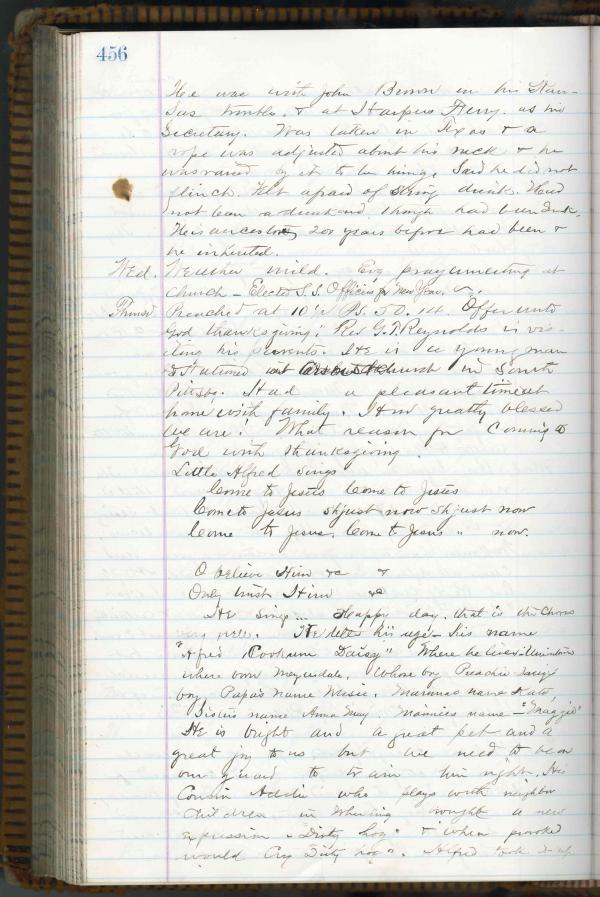 456
He was with John Brown in his Kan-
sas troubles. & at Harpers Ferry. as his
Secretary. Was taken in Texas & a
rope was adjusted about his neck & he
was raised by it to be hung. Said he did not
flinch. Felt afraid of dying drunk. Had
not been a drunkard though had been drunk.
His ancestors 200 years before had been &
he inherited.
Wed. Weather mild. Evg prayermeeting at
Church - Elected S.S. Officers for New Year.
Thurs Preached at 10½ Ps. 50. 14. Offer unto
God thanksgiving." Rev G.T. Reynolds is vis-
iting his parents. He is a young man
& stationed at church in South
Pittsbg. Had a pleasant time at
home with family. How greatly blessed
we are! What reason for coming to
God with thanksgiving.
Little Alfred Sings
Come to Jesus Come to Jesus
Come to Jesus just now just now
Come to Jesus. Come to Jesus " now.
O believe Him &c &
Only trust Him &c
He sings Happy day. that is the Chorus
very well. He tells his age - his name
"Alfred Cookman Daisy" Where he lives
where born Meyersdale. Whose boy Preacher Daisy's
boy. Papa's name Wesie. Mamma's name Kate,
Sisters name Anna May. Mamies name - "Maggie"
He is bright and a great pet and a
great joy to us but we need to be on
our guard to train him right. His
Cousin Addie who plays with neighbor
children in Wheeling brought a new
expression "Dirty hog" & when provoked
would Cry Dirty hog". Alfred took it up